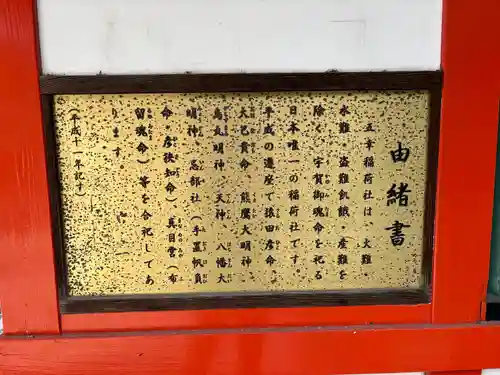 由緒書
五幸稲荷社は、火難・
水難・盗難飢餓・産難を
除く、宇賀御魂命を祀る
日本唯一の稲荷社です。
平成の遷座で猿田彦命、
大己貴命、熊鷹大明神、
烏丸明神、天神、八幡大
明神、忌部社(手置帆負
命、彦狭知命)、真目宮(布
留魂命)等を合祀してあ
ります。
(平成十一年記す)